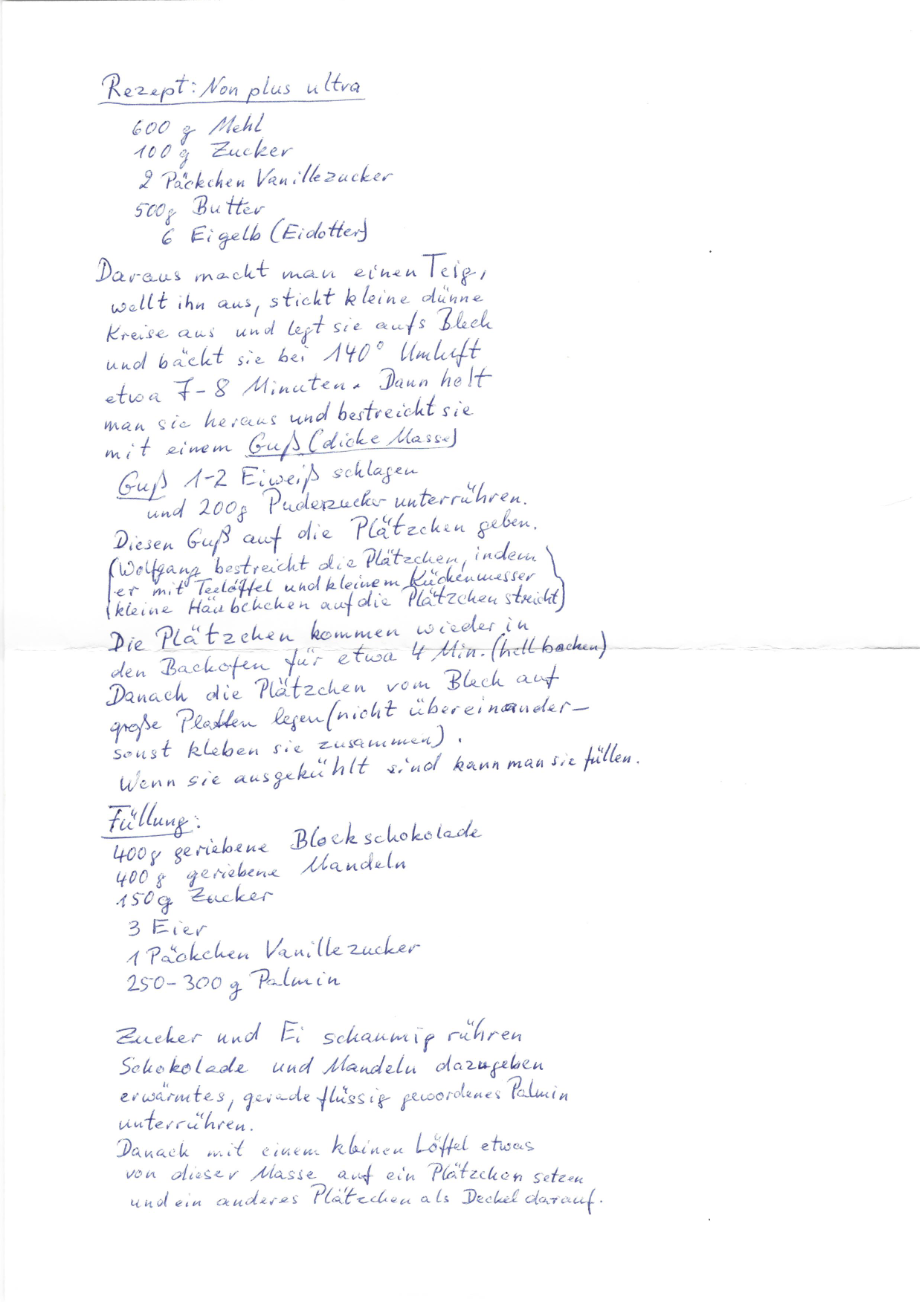 Rezept: Non plus ultra
600 g Mehl
100 g Zucker
2 Päckchen Vanillezucker
500g Butter
6 Eigelb (Eidotter)
Daraus macht man einen Teig,
wellt ihn aus, sticht kleine dünne
Kreise aus und legt sie aufs Blech
und bäckt sie bei 140° Umluft
etwa 7-8 Minuten. Dann holt
man sie heraus und bestreicht sie
mit einem Guß (dicke Masse)
Guß 1-2 Eiweiß schlagen
und 200g Puderzucker unterrühren.
Diesen Guß auf die Plätzchen geben.
(Wolfgang bestreicht die Plätzchen, indem
er mit Teelöffel und kleinem Küchenmesser
kleine Häubchchen auf die Plätzchen streicht)
Die Plätzchen kommen wieder in
den Backofen für etwa 4 Min. (hell backen)
Danach die Plätzchen vom Blech auf
große Platten legen (nicht übereinander-
sonst kleben sie zusammen).
Wenn sie ausgekühlt sind kann man sie füllen.
Füllung:
400g geriebene Blockschokolade
400 g geriebene Mandeln
150g Zucker
3 Eier
1 Päckchen Vanillezucker
250-300 g Palmin
Zucker und Ei schaumig rühren
Schokolade und Mandeln dazugeben
erwärmtes, gerade flüssig gewordenes Palmin
unterrühren.
Danach mit einem kleinen Löffel etwas
von dieser Masse auf ein Plätzchen setzen
und ein anderes Plätzchen als Deckel darauf.